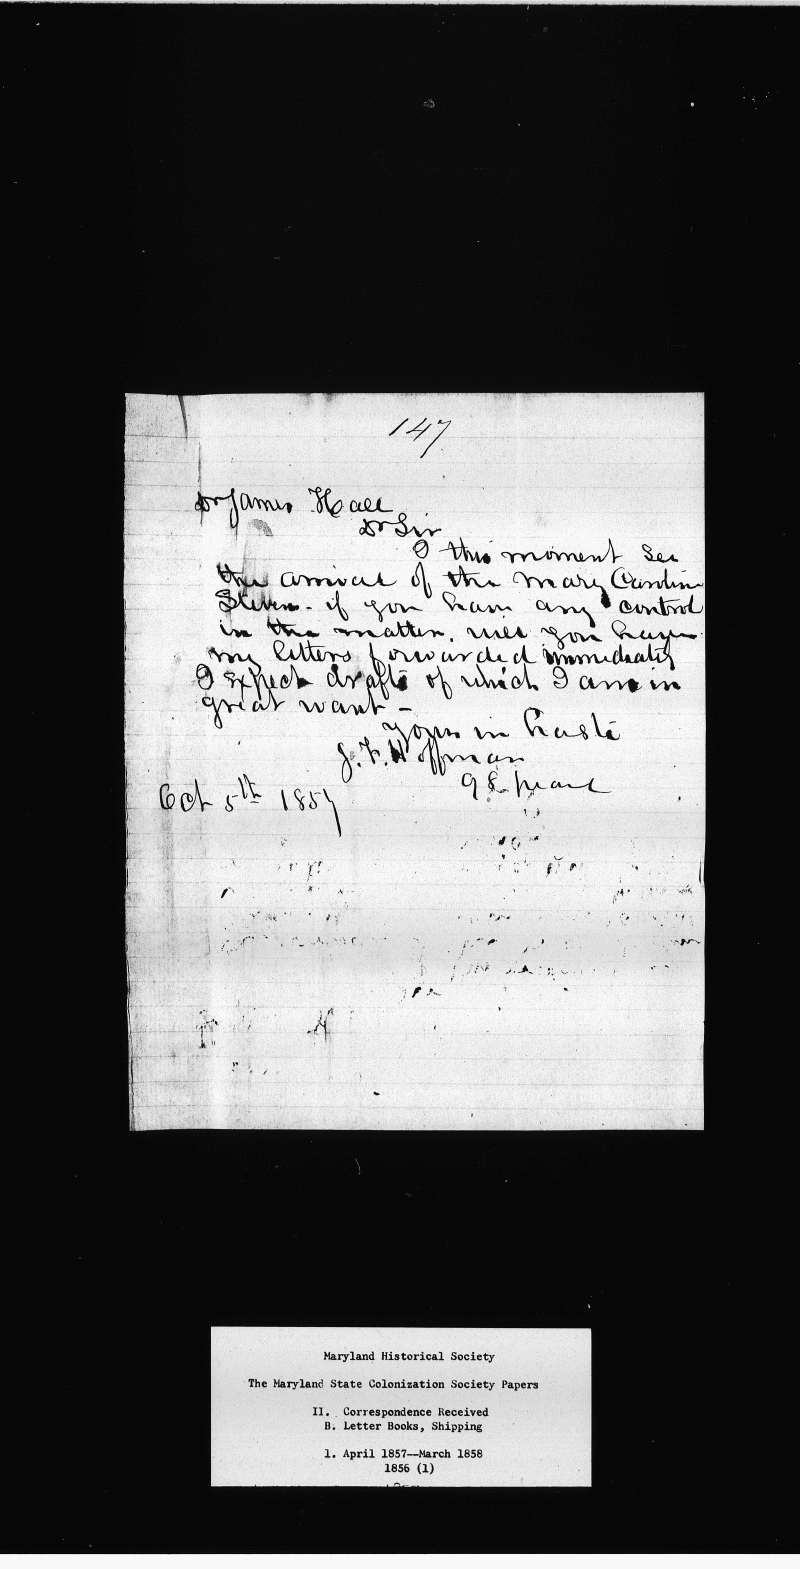 147
Dr James Hall
Dr Sir
I this moment see
the arrival of the Mary Caroline
Steven - if you have any control
in the matter. will you have
my letters forwarded immediately
I expect drafts of which I am in
great want -
Yours in haste
J. F. Hoffman
Oct 5th 1857
Maryland Historical Society
The Maryland State Colonization Society Papers
II. Correspondence Received
B. Letter Books, Shipping
1. April 1857--March 1858
1856 (1)